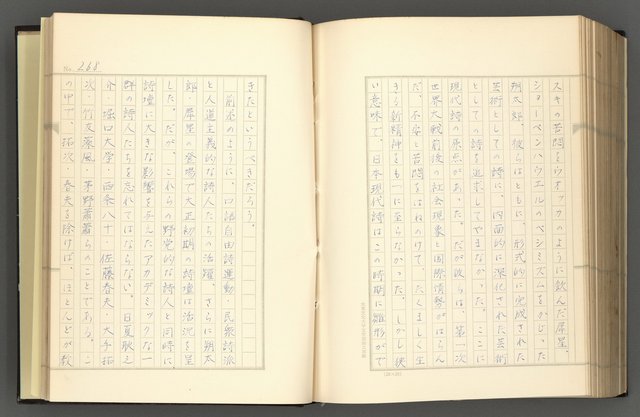 スキの苦悶をウオッカのように飲んだ犀星、
ショーペンハウエルのペシミズムをかじった
朔太郎。彼らはともに、形式的に完成された
芸術としての詩に、内面的に深化された芸術
としての詩を追求してやまなかった。ここに
現代詩の原点があった。だが彼らは、第一次
世界大戦前後の社会現象と国際情勢がはらん
だ、不安と苦悶をはねのけて、たくましく生
きる新精神をもつに至らなかった。しかし狭
い意味で、日本現代詩はこの時期に雛形がで
(20×20)
No. 268
きたというべきだろう。
前述のように、口語自由詩運動・民衆詩派
と人道主義的な詩人たちの活躍、さらに朔太
郎・犀星の登場で大正初期の詩壇は活況を呈
した。だが、これらの野党的な詩人と同時に、
詩壇に大きな影響を与えたアカデミックな一
群の詩人たちを忘れてはならない。日夏耿之
介・堀口大学・西条八十・佐藤春夫・大手拓
次・竹友藻風・茅野蕭々らのことである。こ
の中で、拓次・春夫を除けば、ほとんどが教